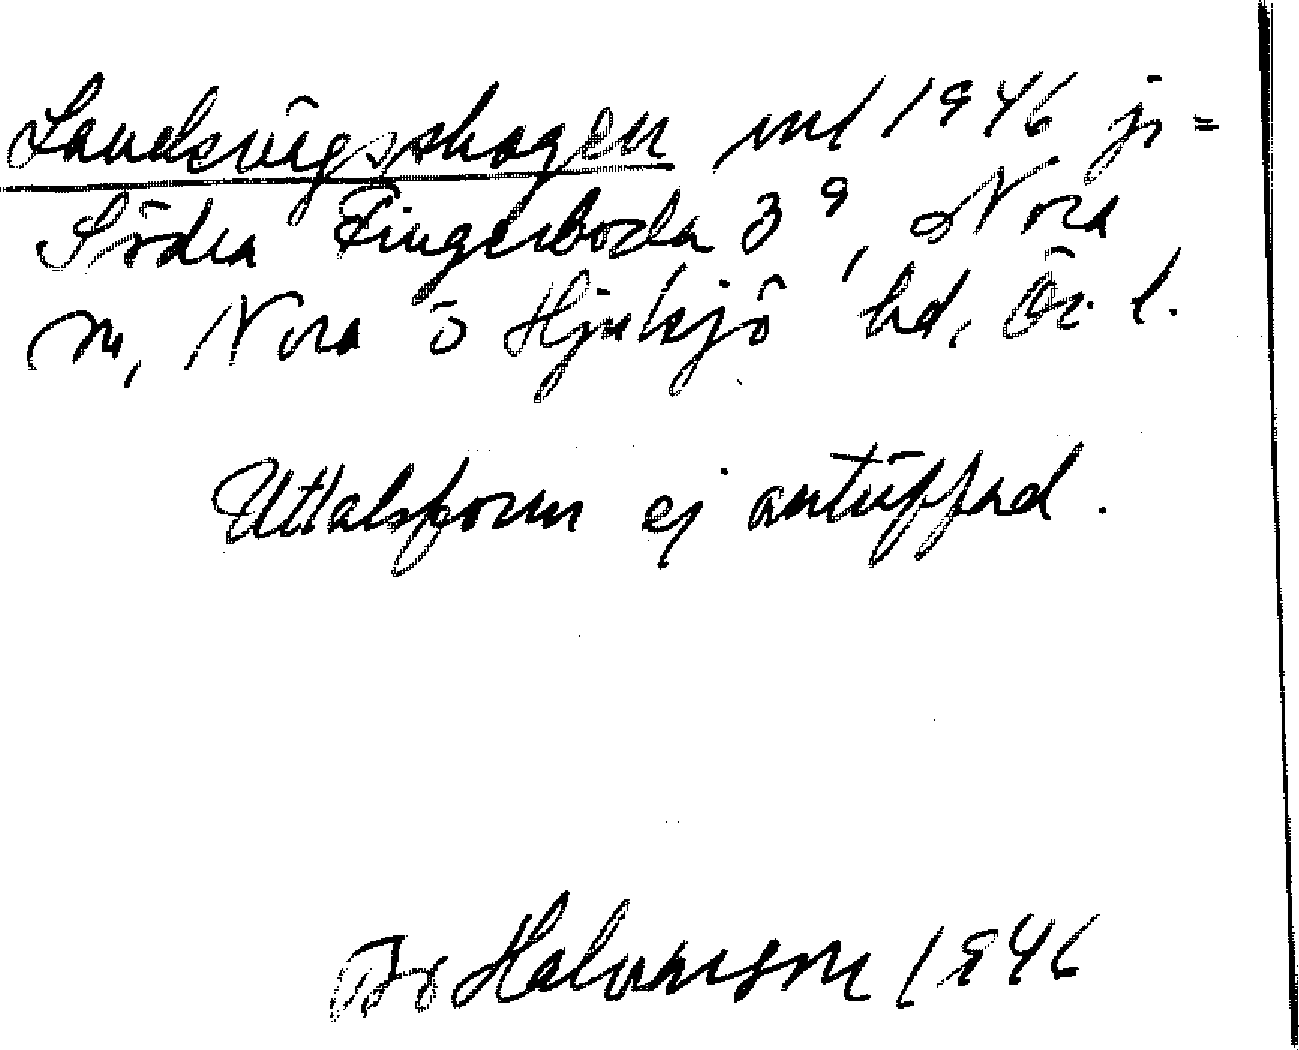 Landsvägsskogen enl 1946 jr =
Södra Fingerboda 3⁹, Nora
sn, Nora o Hjulsjö hd, Ör. l.
Uttalsform ej anträffad.
Bo Halvarsson 1946